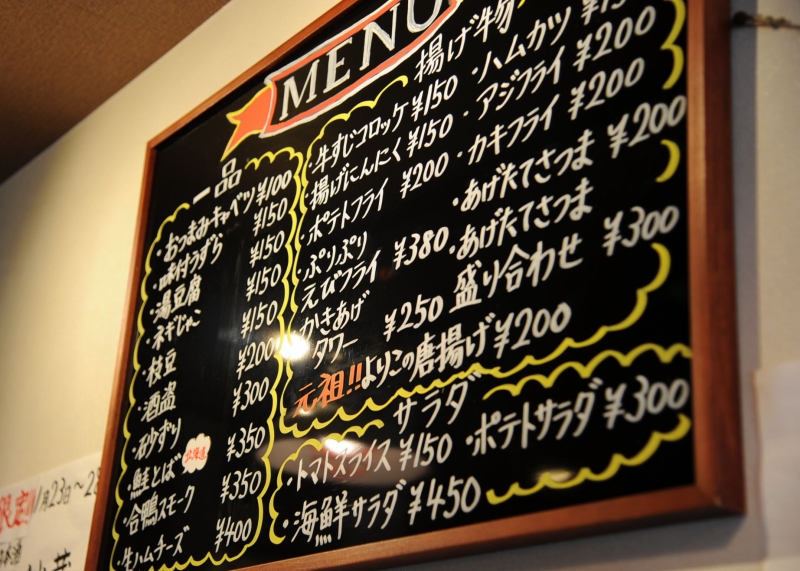 MENU
一品
・おつまみキャベツ ¥100
・味付うずら ¥150
・湯豆腐 ¥150
・ネギじゃこ ¥150
・枝豆 ¥150
・酒盗 ¥200
・砂ずり ¥300
・鮭とば 北海道 ¥350
・合鴨スモーク ¥350
・生ハムチーズ ¥400
揚げ物
・牛すじコロッケ ¥150
・揚げにんにく ¥150
・ポテトフライ ¥200
・ぷりぷり
えびフライ ¥380
かきあげ
タワー ¥250
・ハムカツ
・アジフライ ¥200
・カキフライ ¥200
・あげたてさつま ¥200
・あげたてさつま
盛り合わせ ¥300
元祖!!よりこの唐揚げ ¥200
サラダ
・トマトスライス ¥150
・ポテトサラダ ¥300
・海鮮サラダ ¥450
限定!!
月23日〜2